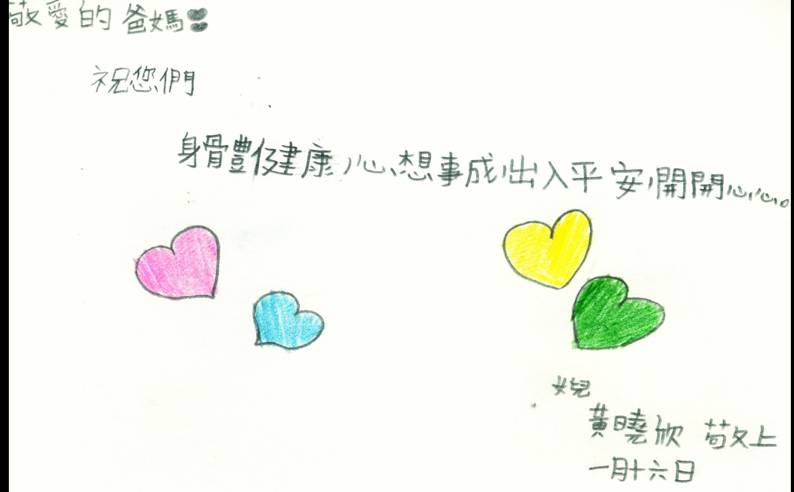 敬愛的爸媽：
祝您們
身體健康，心想事成，出入平安，開開心心。
女兒
黃曉欣 敬上
一月十六日